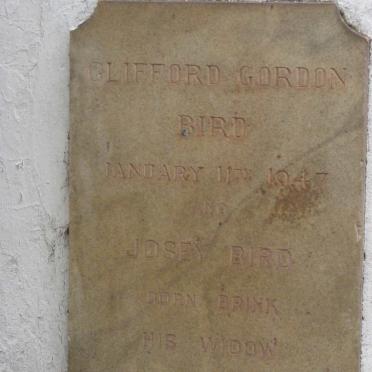 CLIFFORD GORDON
BIRD
JANUARY 11TH 1947
AND
JOSEY BIRD
BORN BRINK
HIS WIDOW